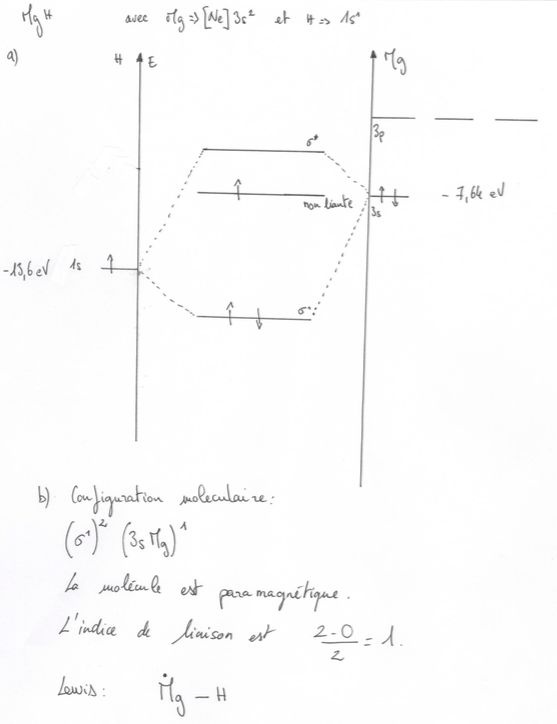 MgH avec Mg => [Ne] 3s² et H => 1s¹
a) H E Mg
3p
σ*
non liante
3s
- 7,64 eV
-13,6 eV 1s
σ
b) Configuration moleculaire:
(σ¹)² (3s Mg)¹
La molécule est paramagnétique.
L'indice de liaison est 2-0/2 = 1.
Lewis: Ṁg – H